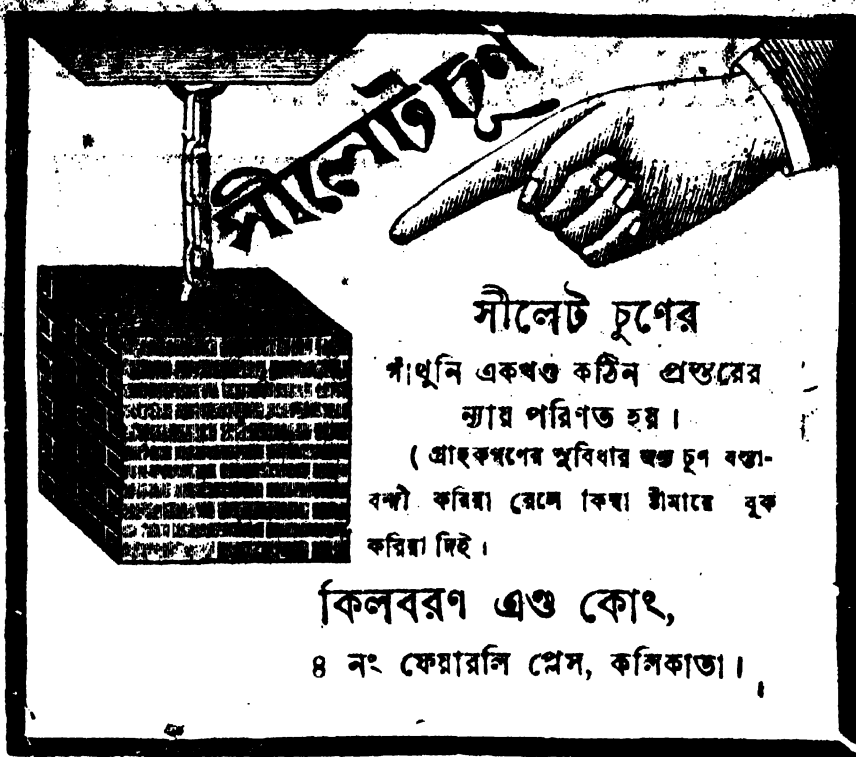 সীলেট চূণ
সীলেট চুণের
গাঁথুনি একখণ্ড কঠিন প্রস্তরের
ন্যায় পরিণত হয়।
( গ্রাহকগণের সুবিধার জন্য চুণ বস্তা-
বন্দী করিয়া রেলে কিম্বা ষ্টীমারে বুক
করিয়া দিই।
কিলবরণ এণ্ড কোং,
৪ নং ফেয়ারলি প্লেস, কলিকাতা।